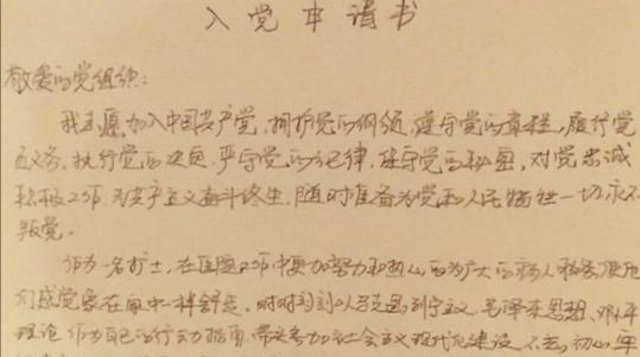 入党申请书
敬爱的党组织：
我志愿加入中国共产党，拥护党的纲领，遵守党的章程，履行党
员义务，执行党的决定，严守党的纪律，保守党的秘密，对党忠诚
积极工作，为共产主义奋斗终生，随时准备为党和人民牺牲一切，永不
叛党。
作为一名护士，在医院工作中更加努力和热心的为广大的病人服务，使他
们感觉象在家中一样舒适。时时刻刻以马克思列宁主义、毛泽东思想、邓小平
理论作为自己的行动指南，带头参加社会主义现代化建设，不忘初心，牢